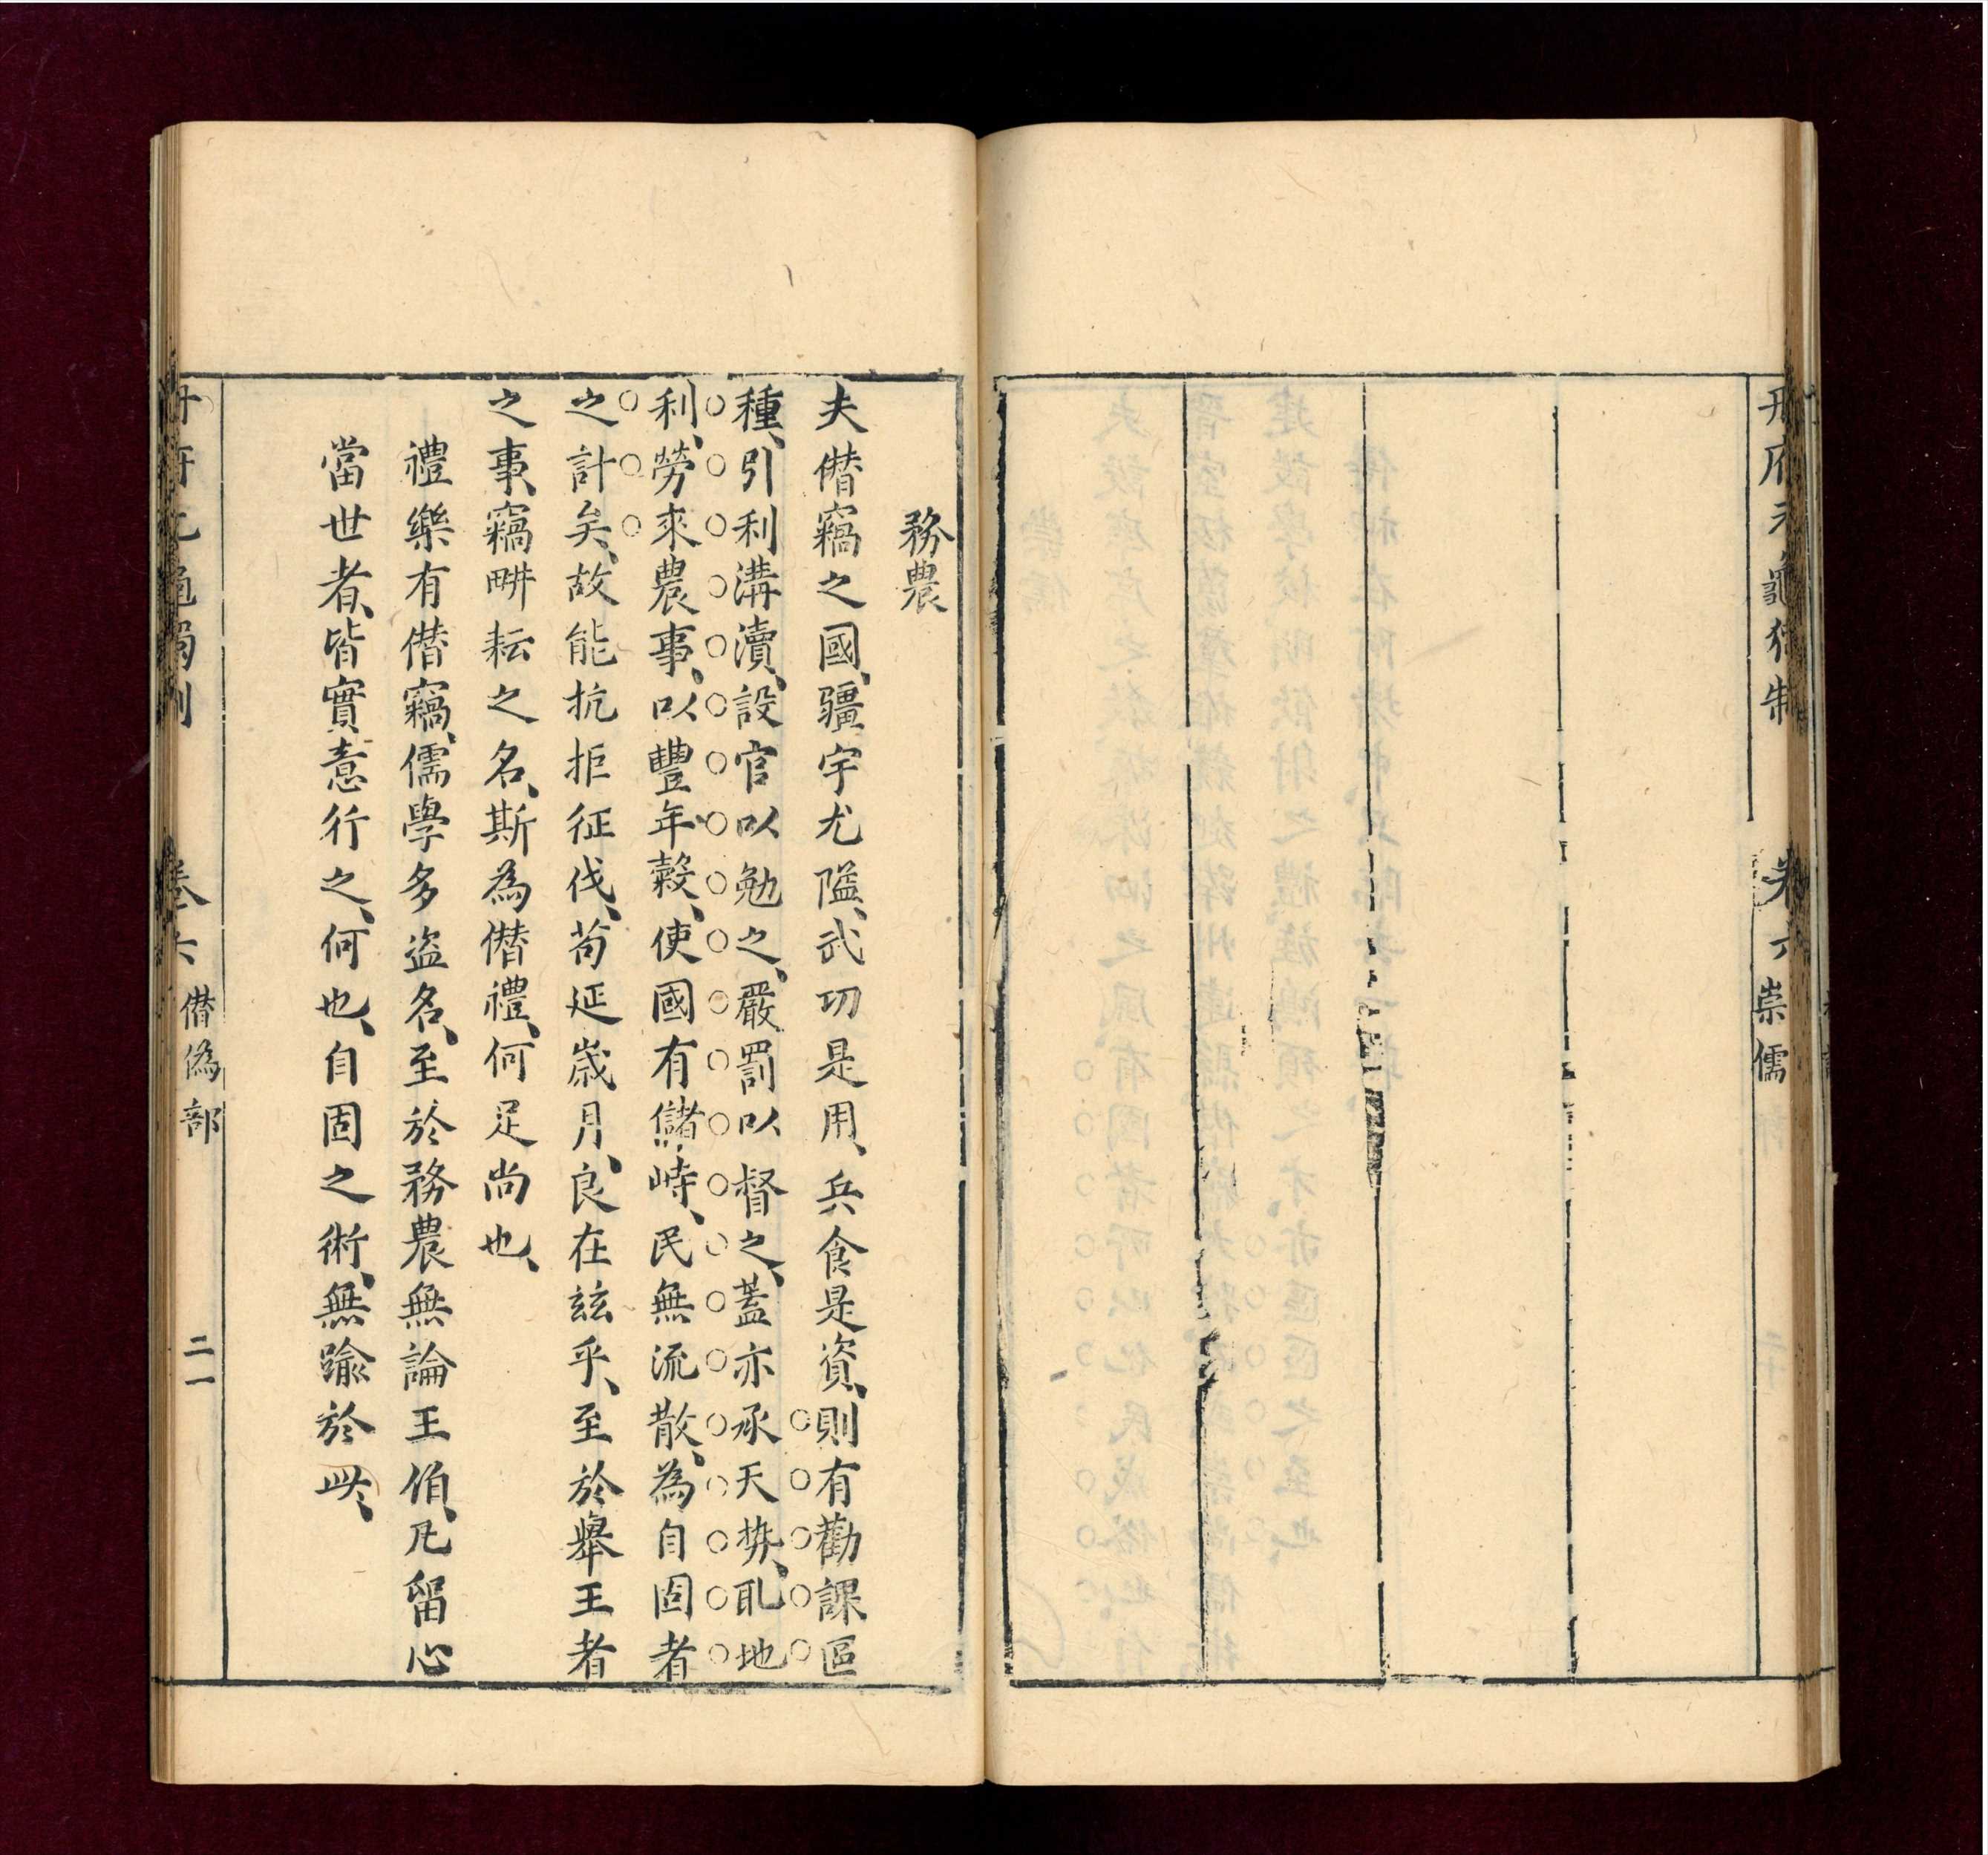 冊府元龜獨制
卷六 崇儒
務農
夫僣竊之國、疆宇尤隘、武功是用、兵食是資、則有勸課區
種、引利溝瀆、設官以勉之、嚴罰以督之、蓋亦承天埶、乿地
利、勞來農事、以豐年糓、使國有儲峙、民無流散、為自固者
之計矣、故能抗拒征伐、苟延歲月、良在玆乎、至於舉王者
之事、竊畊耘之名、斯為僣禮、何足尚也、
禮樂有僣竊、儒學多盜名、至於務農無論王伯、凡留心
當世者、皆實意行之、何也、自固之術、無踰於此、
冊府元龜獨制
卷六 僣偽部
二一